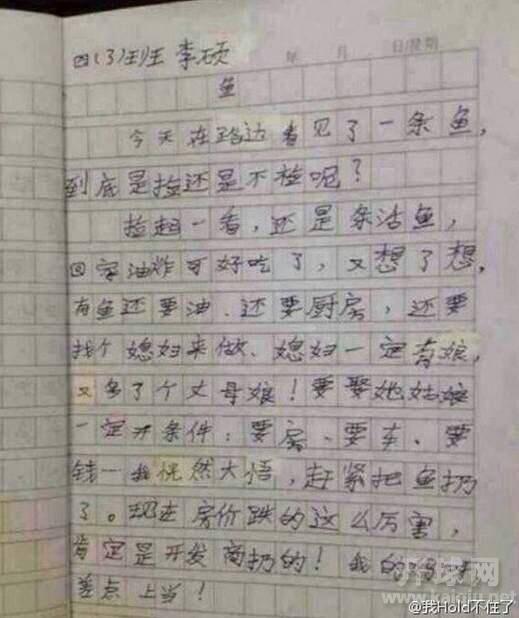 四(3)班 李硕
年 月 日/星期
鱼
今天在路边看见了一条鱼，
到底是捡还是不检呢？
捡起一看，还是条活鱼，
回家油炸可好吃了，又想了想，
有鱼还要油、还要厨房，还要
找个媳妇来做、媳妇一定有娘，
又多了个丈母娘！要娶她姑娘
一定开条件：要房、要车、要
钱一我恍然大悟，赶紧把鱼扔
了。现在房价跌的这么厉害，
肯定是开发商扔的！我的妈呀
差点上当！
开球网
www.kaiqiu.net
@我Hold不住了